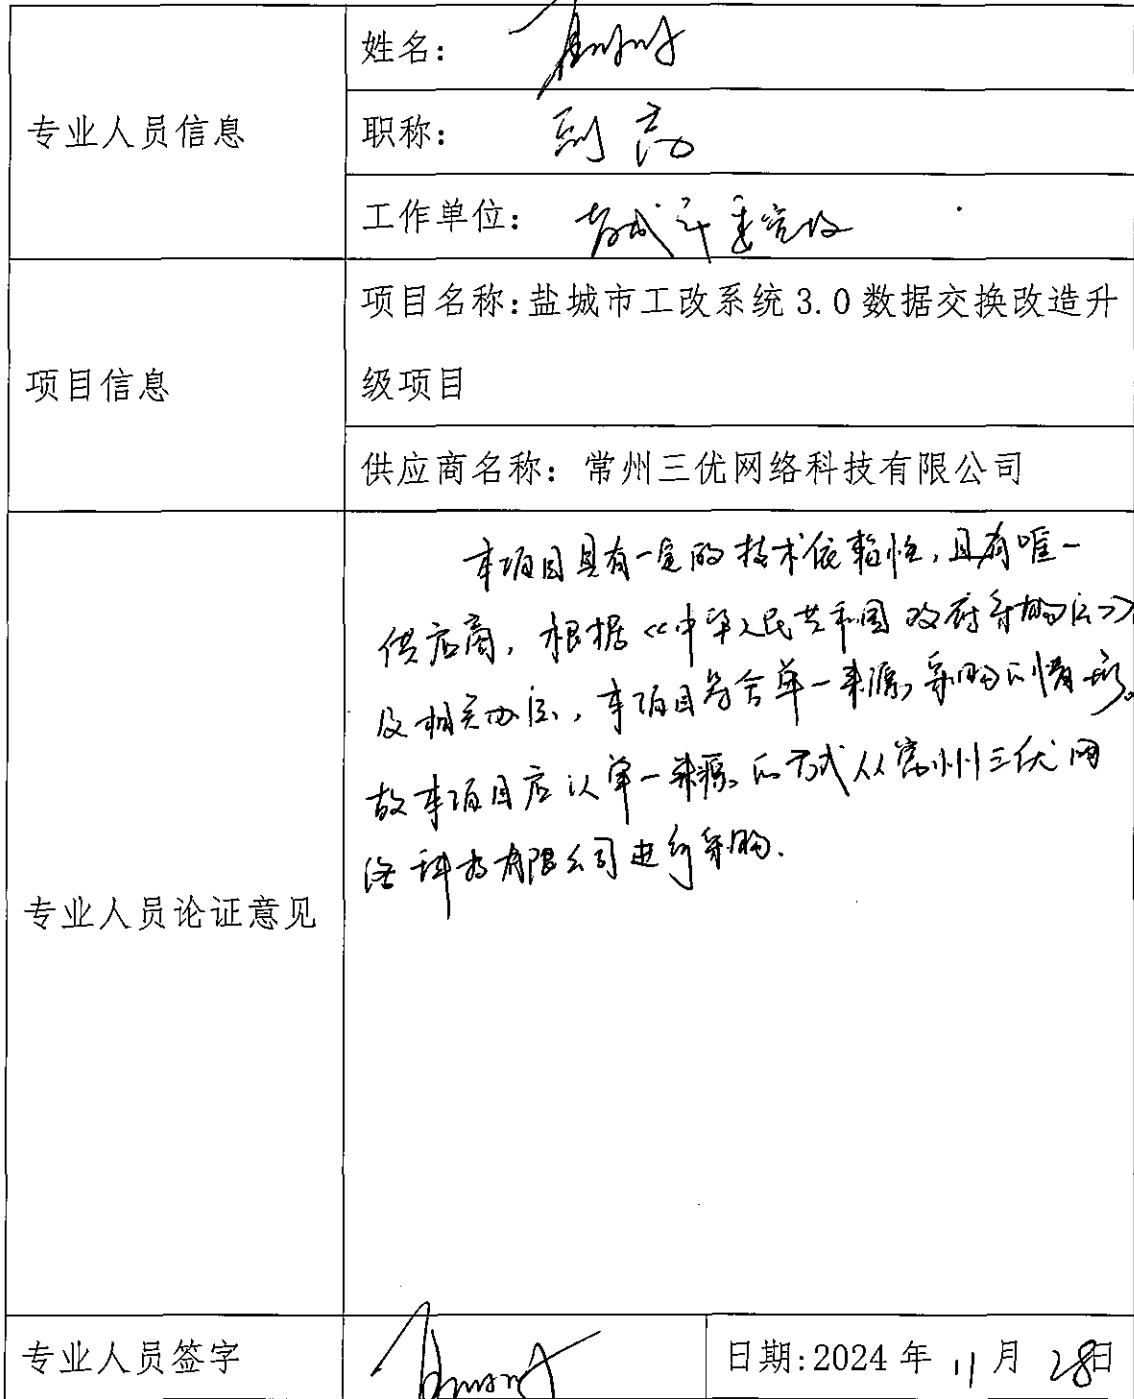 姓名:
专业人员信息
职称: 副高
工作单位:
项目名称:盐城市工改系统 3.0 数据交换改造升
项目信息
级项目
供应商名称: 常州三优网络科技有限公司
本项目具有一定的技术依赖性,且有唯一
供应商, 根据《中华人民共和国政府采购法》
及相关办法, 本项目符合单一来源采购的情形。
故本项目应以单一来源的方式从常州三优网
络科技有限公司进行采购.
专业人员论证意见
专业人员签字
日期:2024 年 11 月 28日